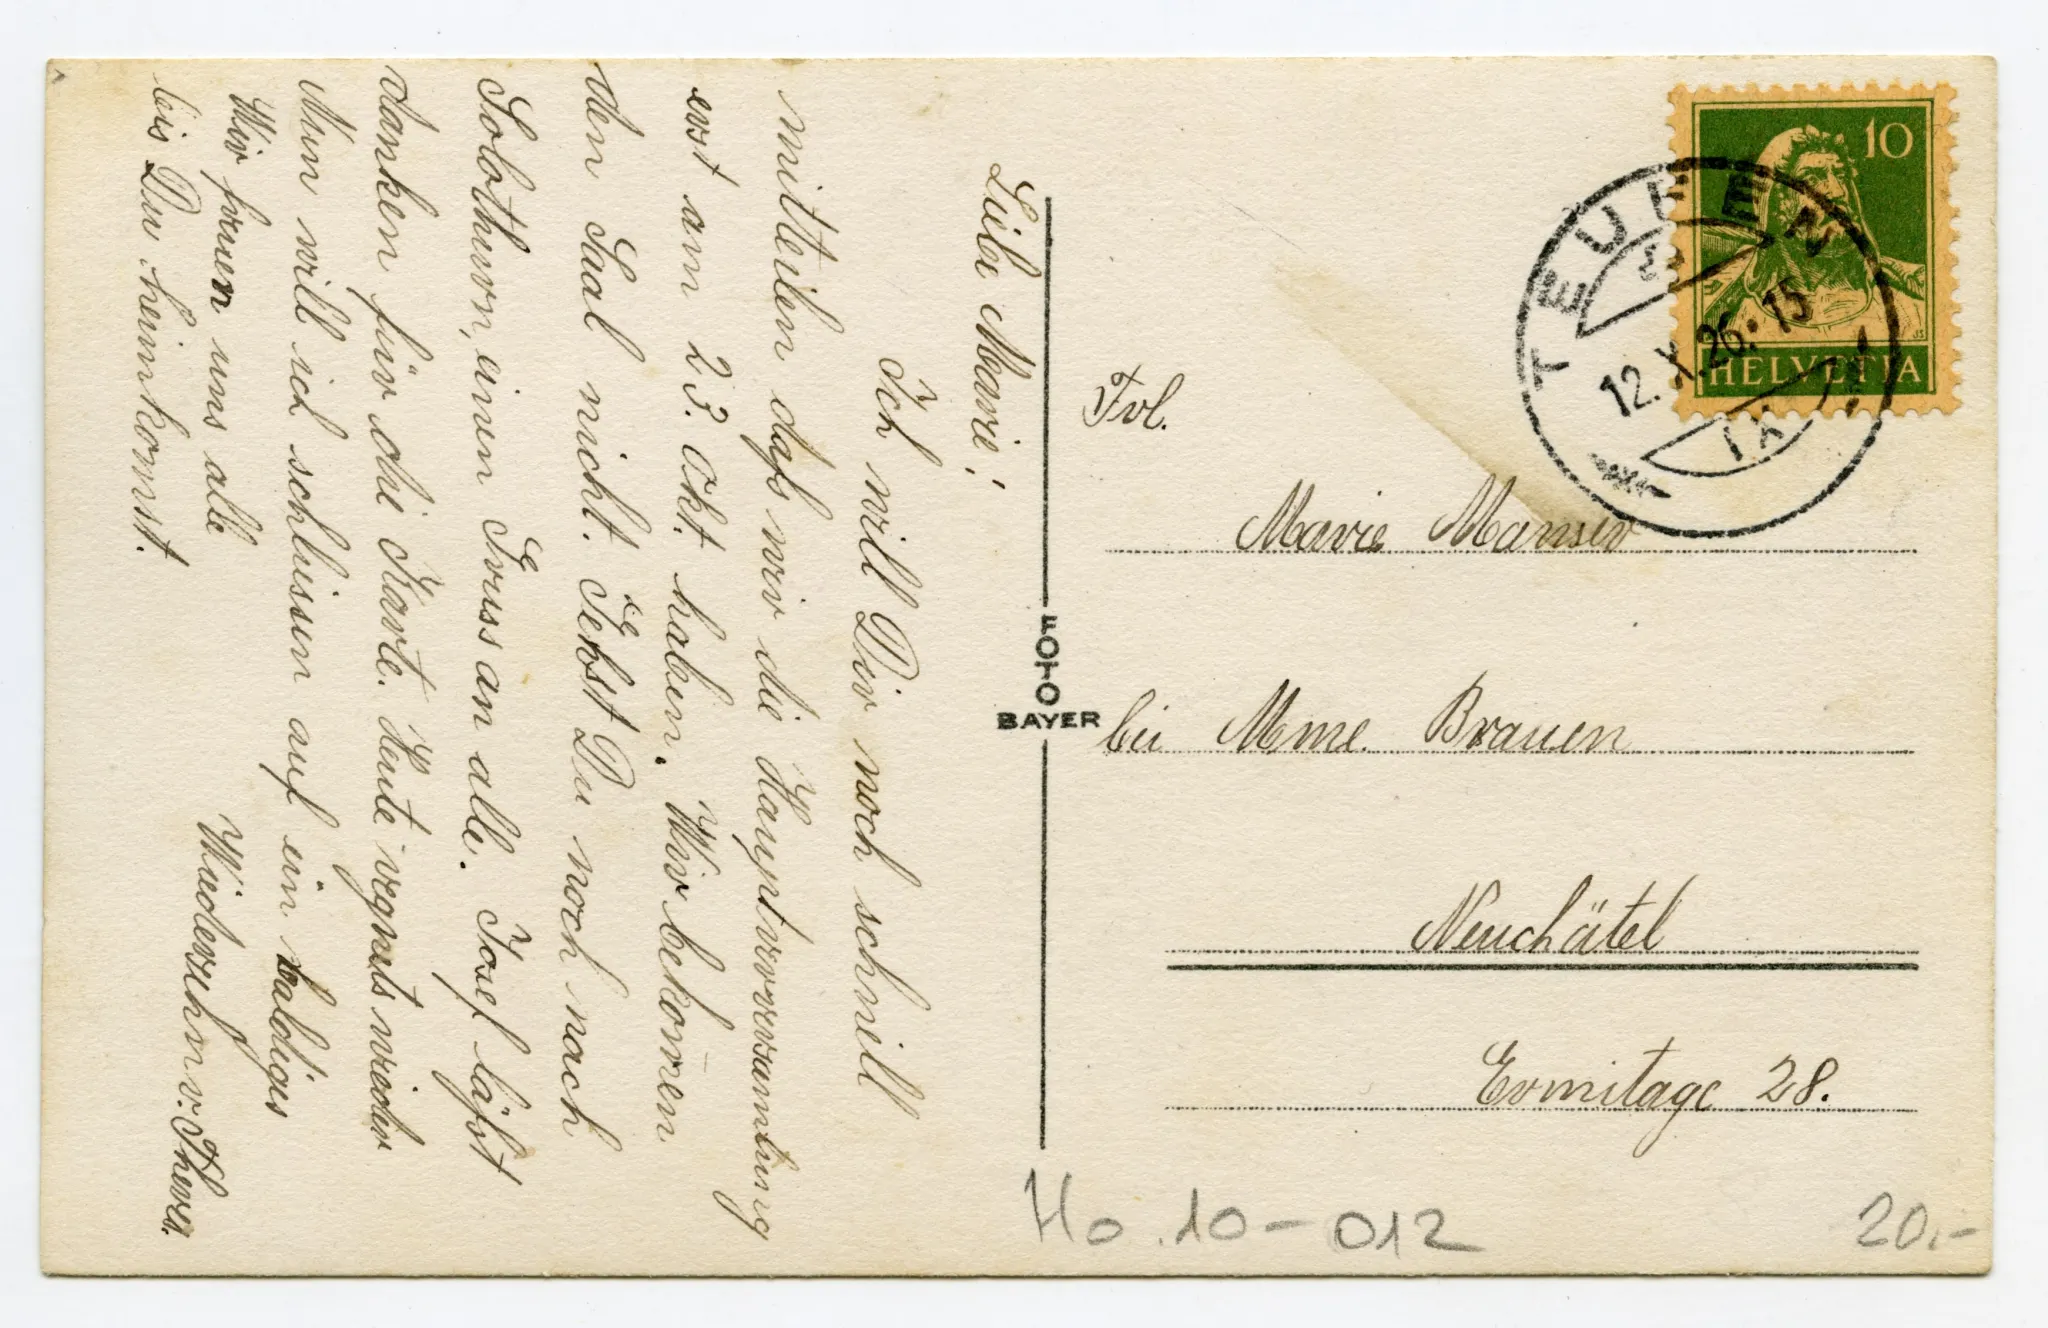 Liebe Marie!
Ich will Dir noch schnell
mitteilen dass mir die Hauptversammlung
erst am 23. Okt. haben. Wir bekomen
den Saal nicht. Gehst Du noch nach
Solothurn, einen Gruss an alle. Josef lässt
danken für die Karte. Heute regnets wieder
Nun will ich schliessen auf ein baldiges
Wiedersehn v. Theres.
Wir freuen uns alle
bis Du heimkomst.
FOTO
BAYER
10
HELVETIA
TEUFEN
12.X.26. 15
Frl.
Marie Manser
bei Mme. Brauen
Neuchâtel
Ermitage 28.
Ho.10-012
20.-